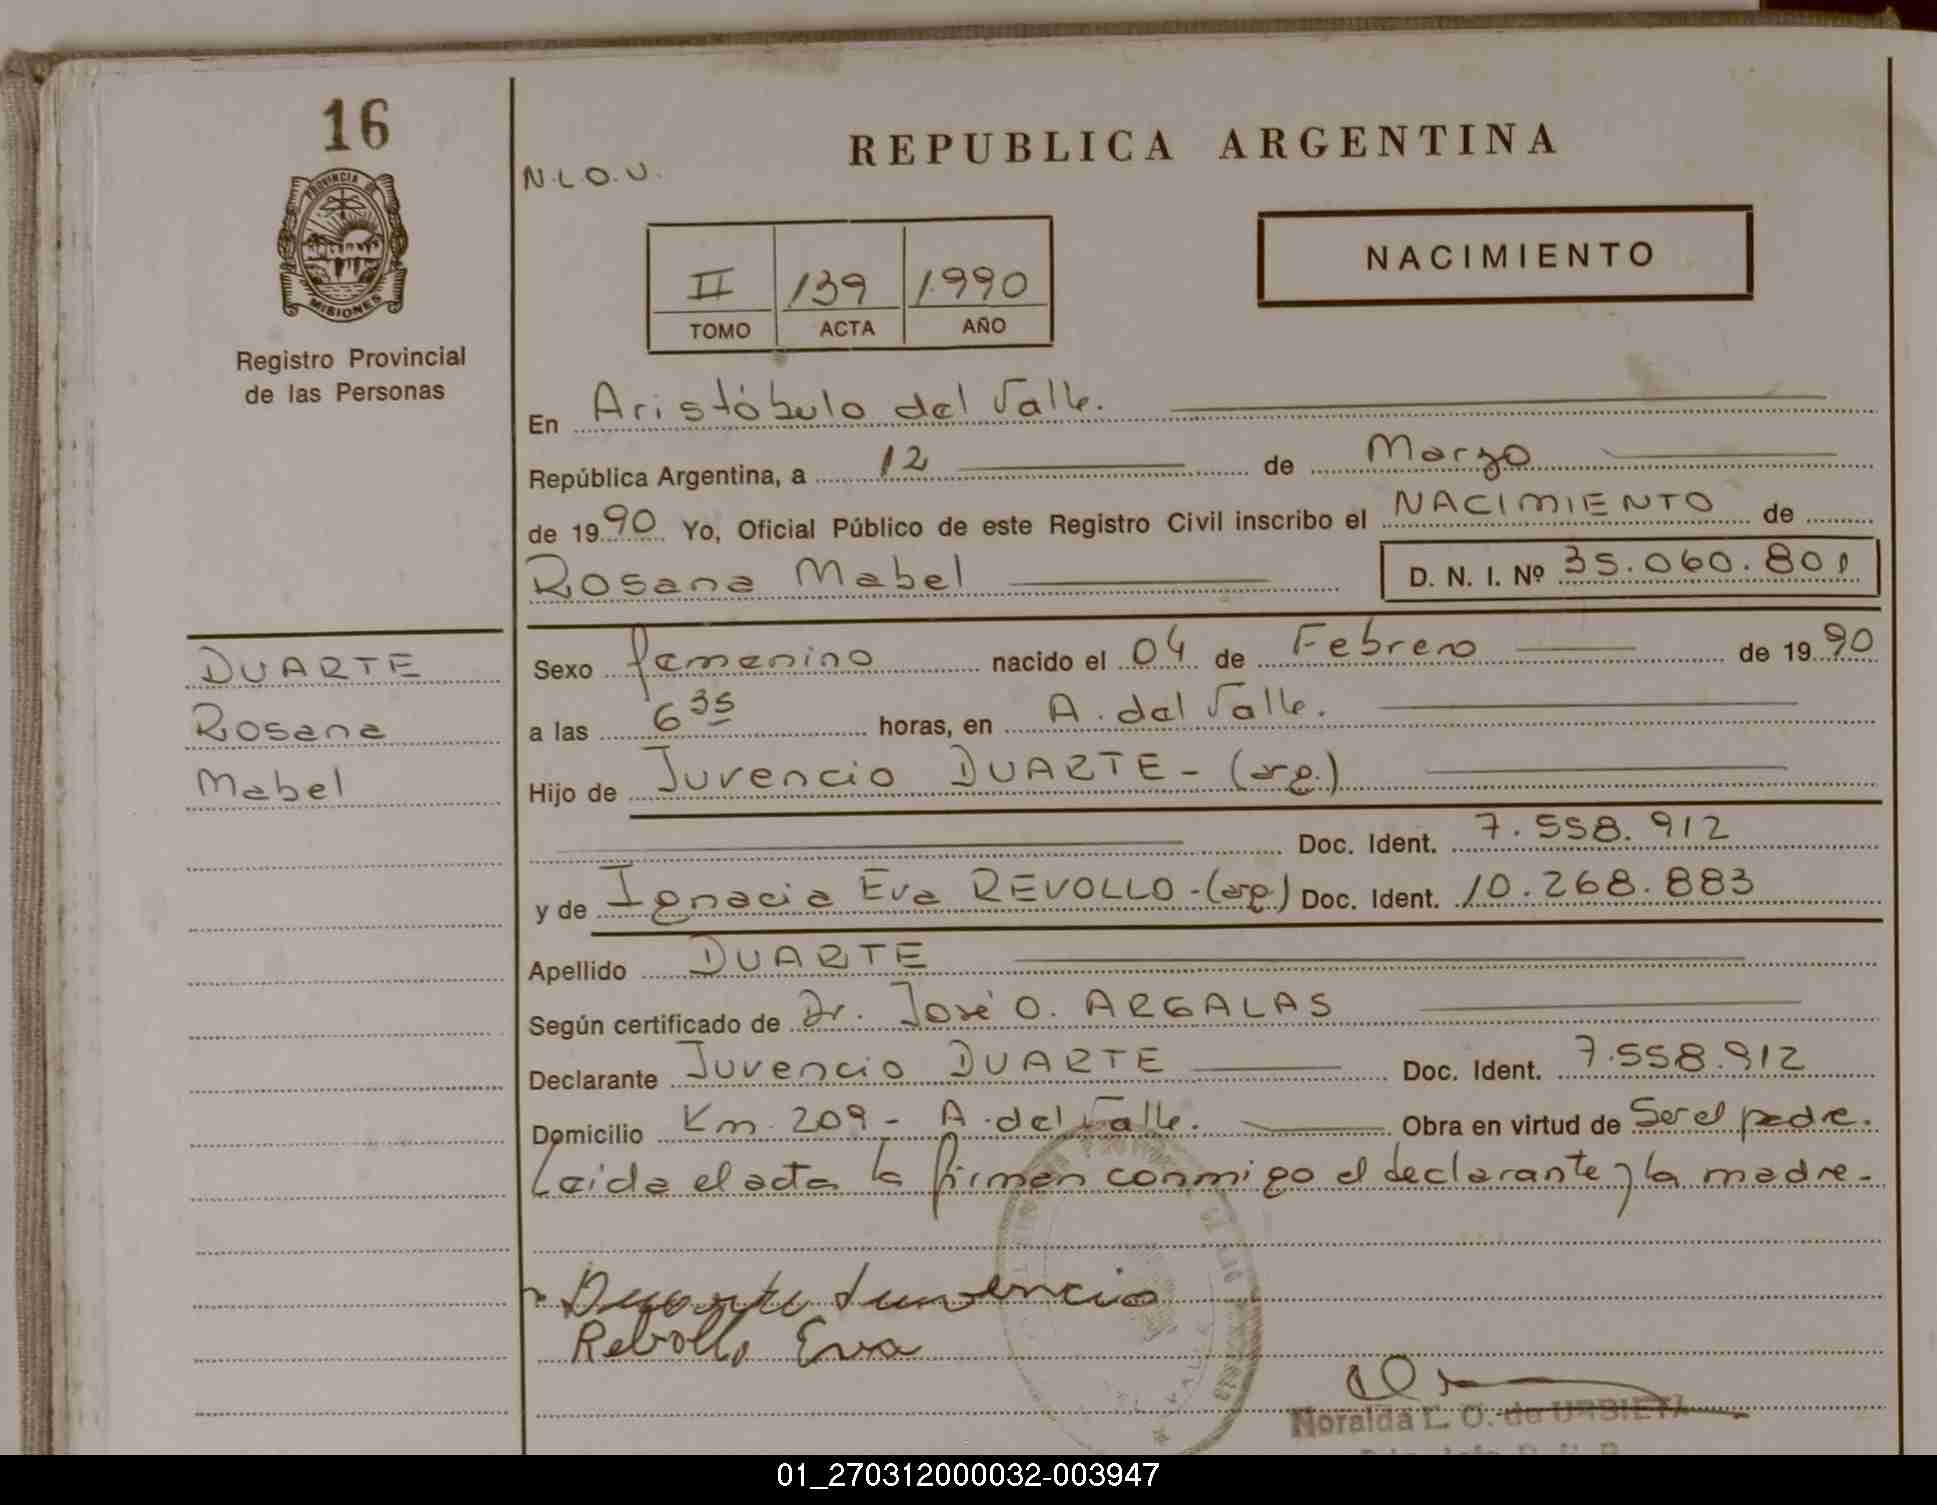 16
PROVINCIA DE
MISIONES
Registro Provincial
de las Personas
DUARTE
Rosana
Mabel
N.L.O.U.
REPUBLICA ARGENTINA
II 139 1990
TOMO ACTA AÑO
NACIMIENTO
En Aristóbulo del Valle.
República Argentina, a 12 de Marzo
de 1990 Yo, Oficial Público de este Registro Civil inscribo el NACIMIENTO de
Rosana Mabel D. N. I. Nº 35.060.801
Sexo femenino nacido el 04 de Febrero de 1990
a las 6 35 horas, en A. del Valle.
Hijo de Juvencio DUARTE - (arg.)
Doc. Ident. 7.558.912
y de Ignacia Eva REVOLLO - (arg.) Doc. Ident. 10.268.883
Apellido DUARTE
Según certificado de Dr. José O. ARGALAS
Declarante Juvencio DUARTE Doc. Ident. 7.558.912
Domicilio Km. 209 - A. del Valle. Obra en virtud de Ser el padre.
Leida el acta la firman conmigo el declarante y la madre.
Duarte Juvencio
Rebollo Eva
Noralda L. O. de URBIETA
01_270312000032-003947